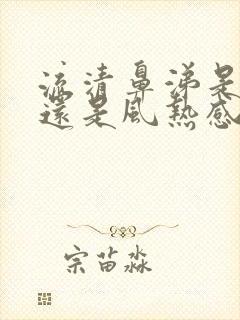 流清鼻涕是
還是風熱感
宗苗淼